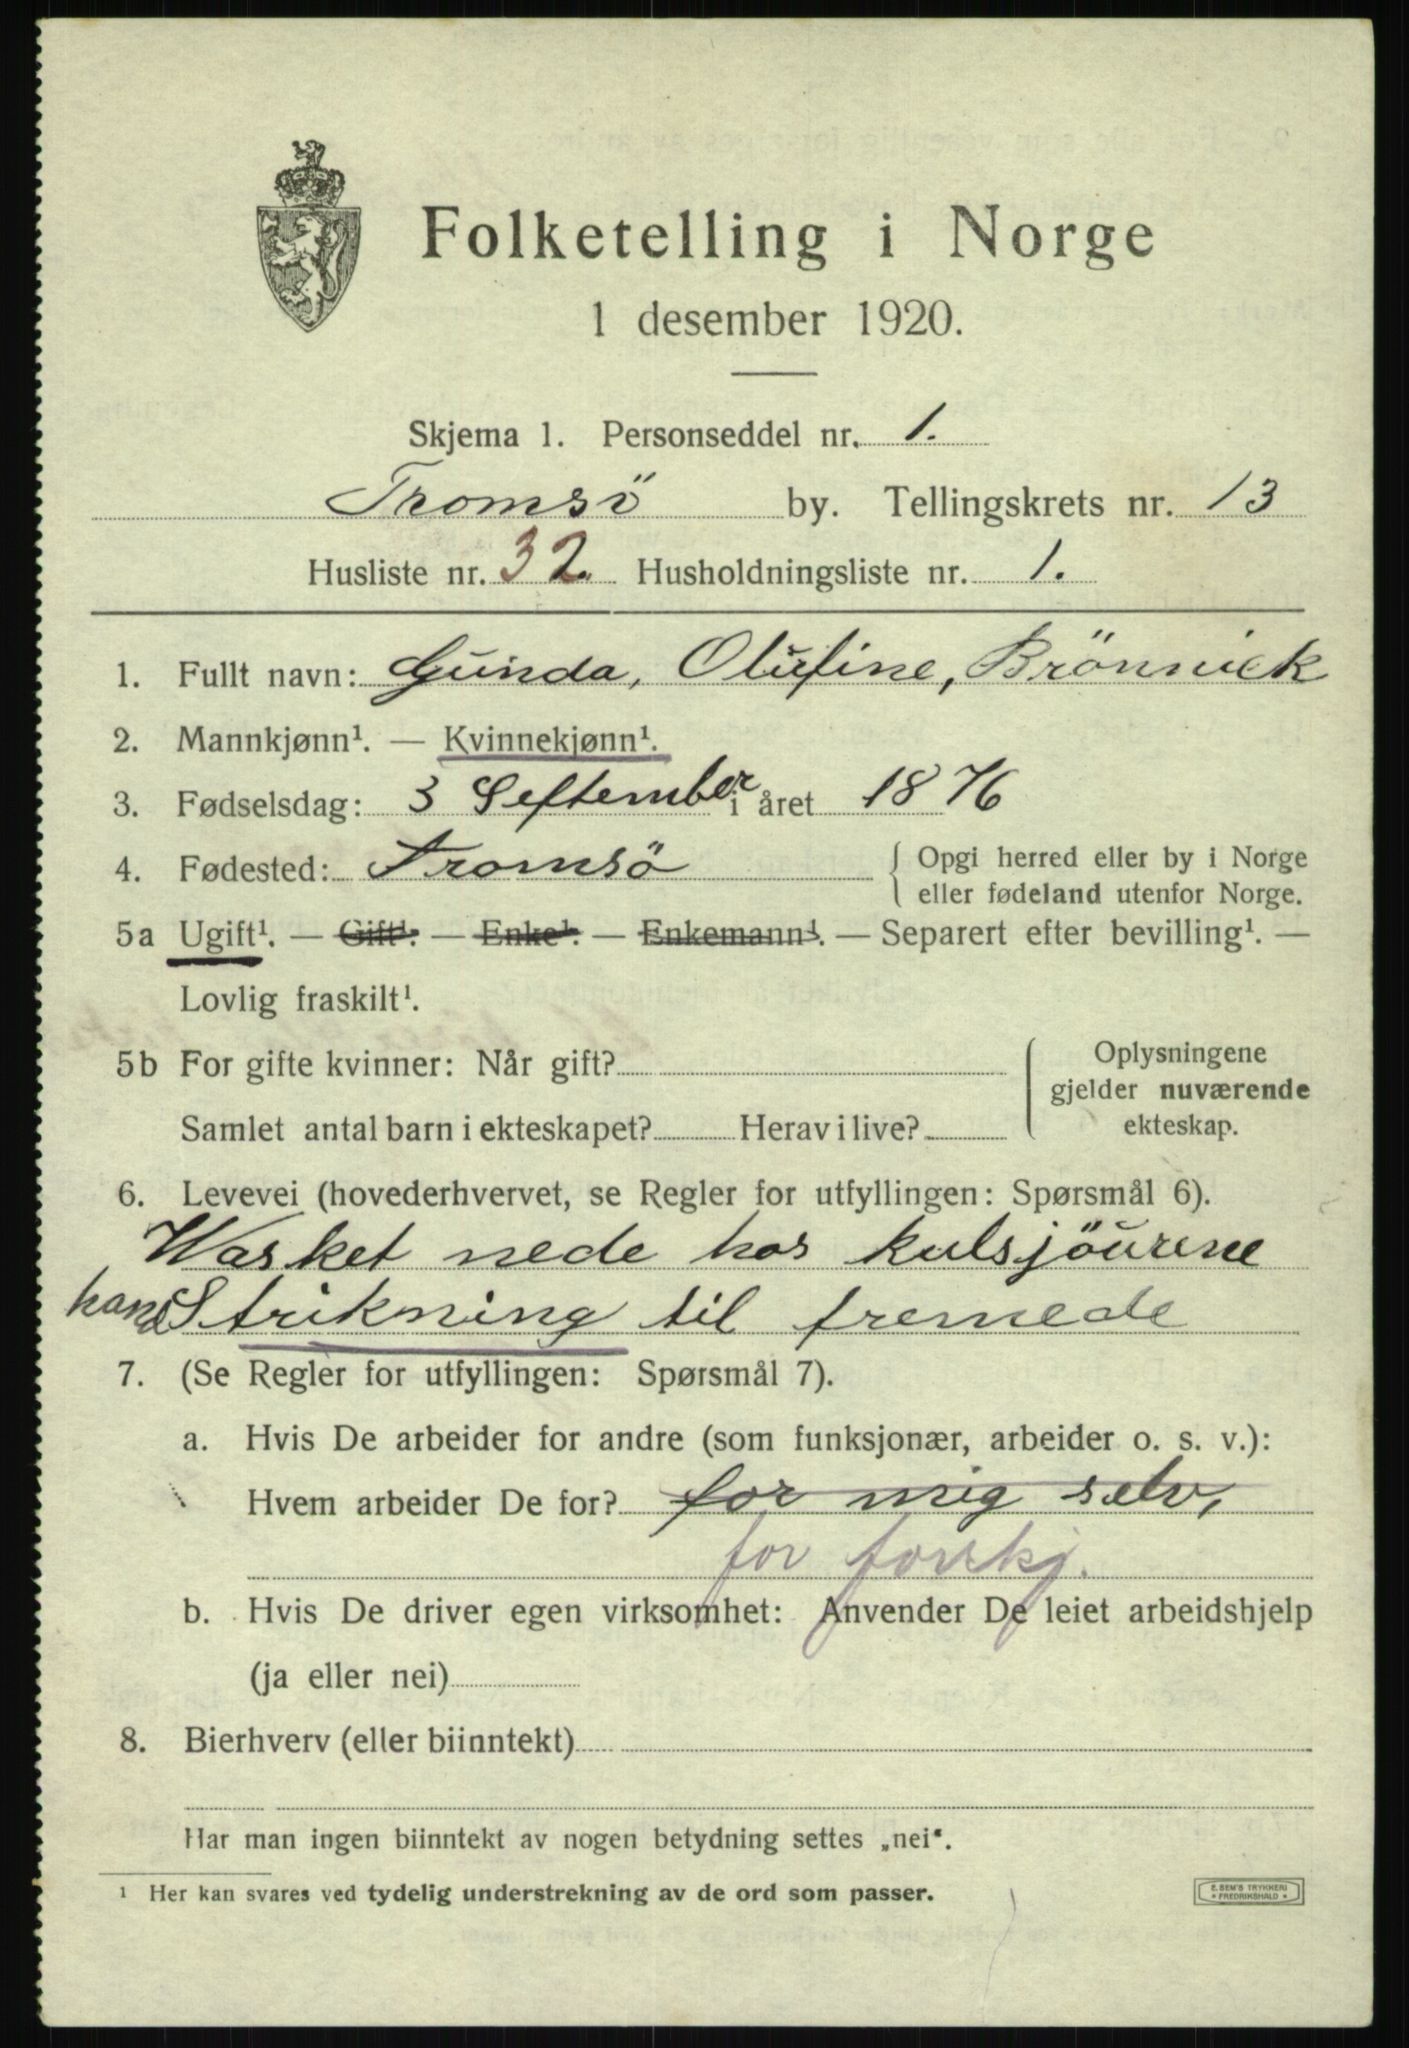 Folketelling i Norge
1 desember 1920.
Skjema 1. Personseddel nr. 1.
Tromsö by. Tellingskrets nr. 13
Husliste nr. 32. Husholdningsliste nr. 1.
1. Fullt navn: Gunda, Olufine, Brönnick
2. Mannkjønn¹. — Kvinnekjønn¹.
3. Fødselsdag: 3 September i året 1876
4. Fødested: Tromsö { Opgi herred eller by i Norge
eller fødeland utenfor Norge.
5a Ugift¹. — Gift¹. — Enke¹. — Enkemann¹. — Separert efter bevilling¹. —
Lovlig fraskilt¹.
5b For gifte kvinner: Når gift? { Oplysningene
gjelder nuværende
Samlet antal barn i ekteskapet? Herav i live? ekteskap.
6. Levevei (hovederhvervet, se Regler for utfyllingen: Spørsmål 6).
Wasket nede hos kulsjöurene
hand Strikning til fremede
7. (Se Regler for utfyllingen: Spørsmål 7).
a. Hvis De arbeider for andre (som funksjonær, arbeider o. s. v.):
Hvem arbeider De for? for mig selv,
for forskj.
b. Hvis De driver egen virksomhet: Anvender De leiet arbeidshjelp
(ja eller nei)
8. Bierhverv (eller biinntekt)
Har man ingen biinntekt av nogen betydning settes „nei“.
¹ Her kan svares ved tydelig understrekning av de ord som passer.
E. SEM'S TRYKKERI
* FREDRIKSHALD *